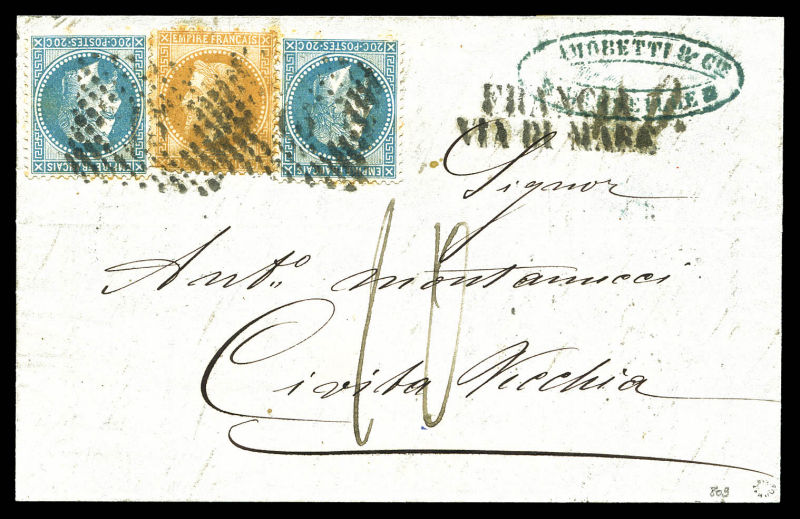 20C·POSTES·20C
EMPIRE FRANÇAIS
EMPIRE FRANÇAIS
20C·POSTES·20C
EMPIRE FRANÇAIS
AMORETTI & Cie
FRANCIA
VIA DI MARE
Signor
Anto. montanucci
Civita Vecchia
10
809